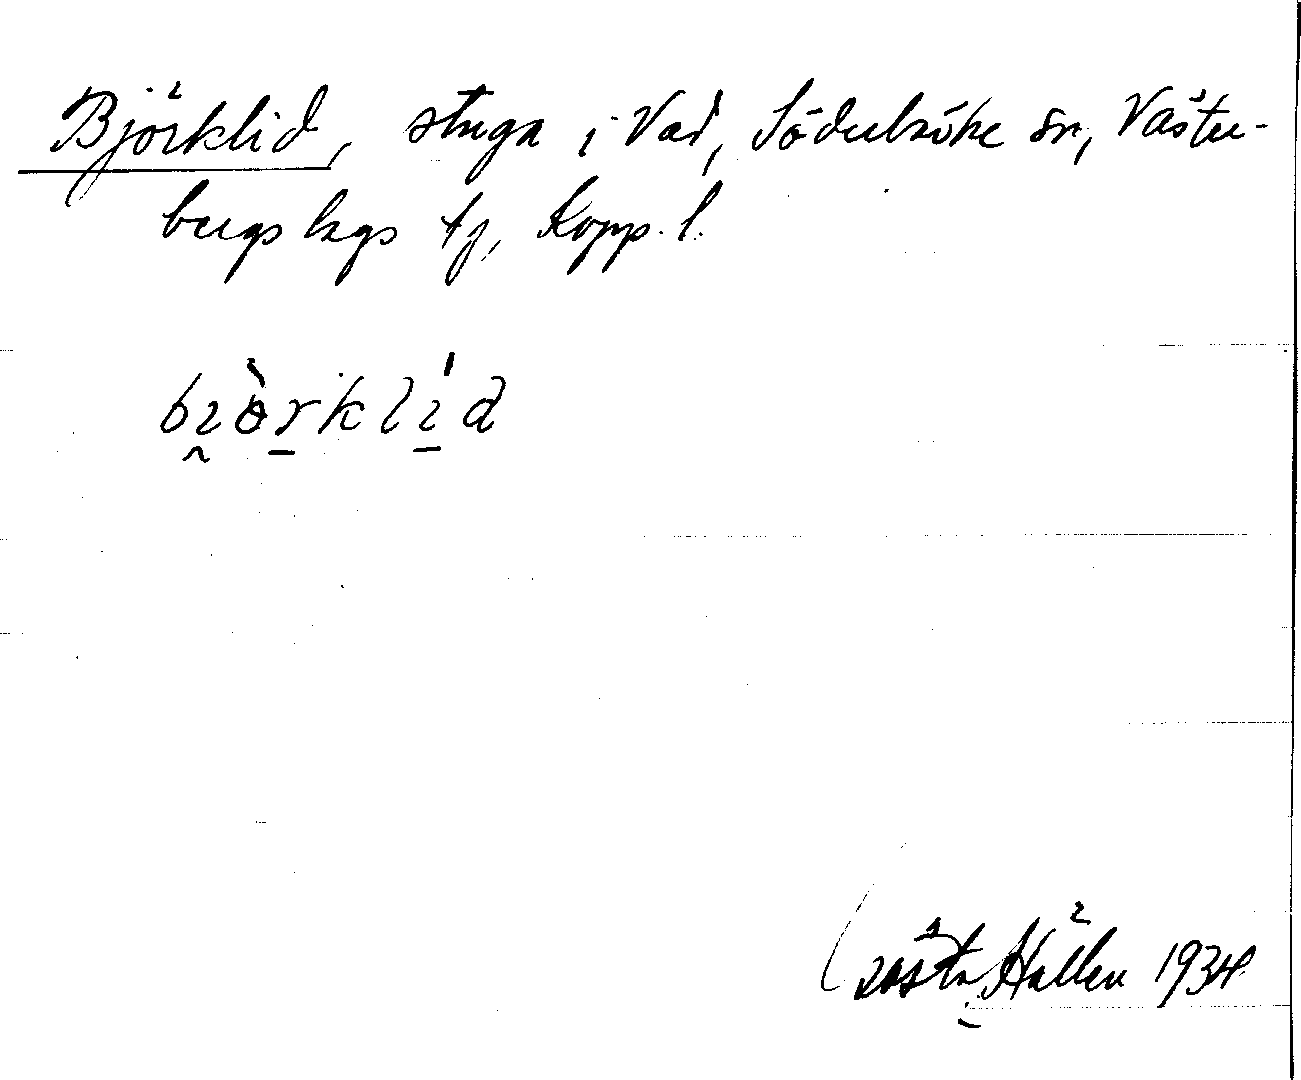 Björklid, stuga i Vad, Söderbärke sn, Väster-
bergslags tjg, Kopp. l.
bjö̀rklíd
Gösta Hällen 1934